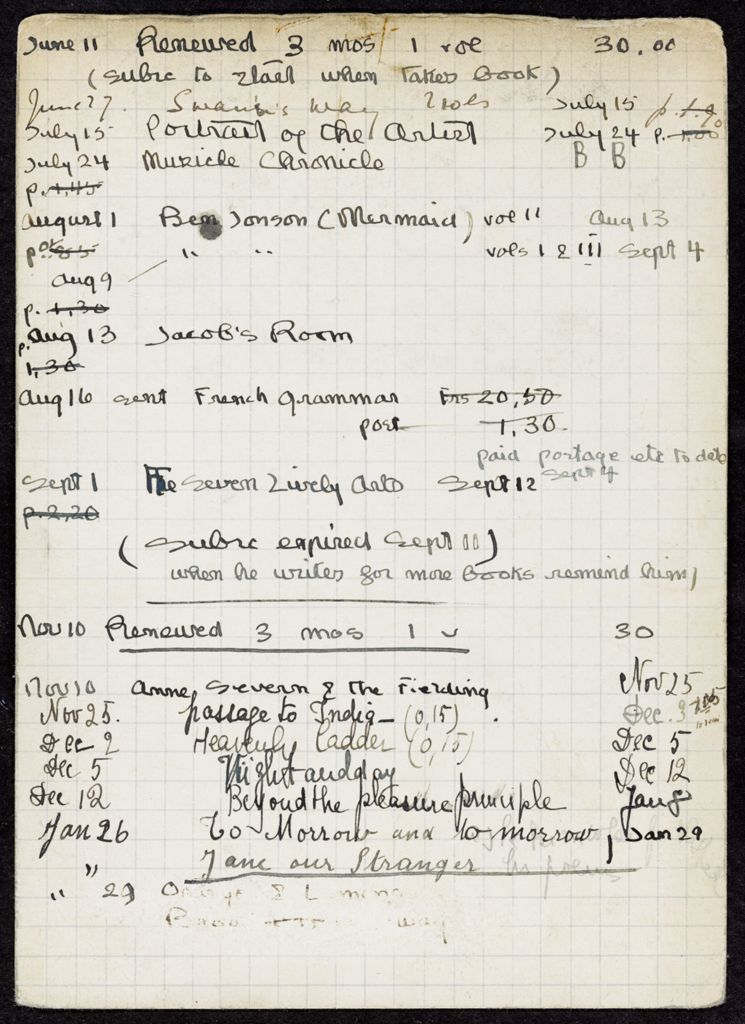 June 11 Renewed 3 mos 1 vol 30.00
(subsc to start when takes book)
June 27. Swann's Way 2 vols July 15 p. 1.90
July 15 Portrait of the Artist July 24 p. 1.00
July 24 Musicle Chronicle B B
p. 1,45
August 1 Ben Jonson (Mermaid) vol II Aug 13
" " vols 1 & III Sept 4
Aug 9
p. 1,30
p. Aug 13 Jacob's Room
1,30
Aug 16 sent French grammar Frs 20,50
post 1,30
paid postage etc to date
Sept 4
Sept 1 The Seven Lively Arts Sept 12
p. 2,20
(subsc expired Sept 11)
when he writes for more books remind him)
Nov 10 Renewed 3 mos 1 v 30
Nov 10 Anne Severn & the Fielding Nov 25
Nov 25. passage to India (0,15). Dec. 3
Dec 2 Heavenly Ladder (0,15) Dec 5
Dec 5 Night and day Dec 12
Dec 12 Beyond the pleasure principle Jan 8
Jan 26 To-Morrow and to-morrow, Jan 29
" Jane our Stranger
" 29